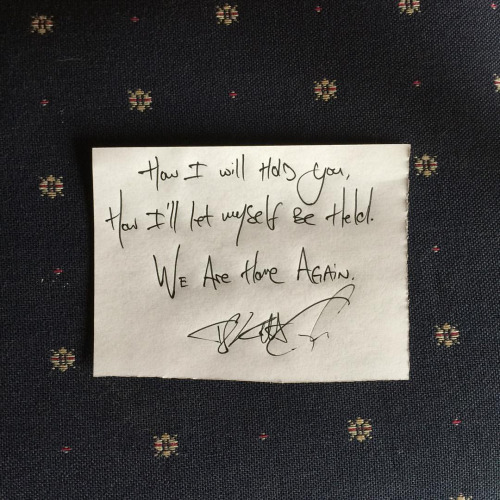 How I will Hold you,
How I'll let myself Be Held.
We Are Home Again.